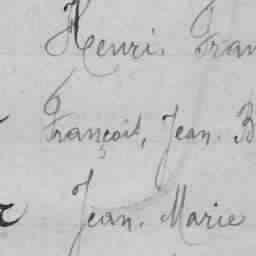 Henri Fran
François, Jean. B
Jean. Marie